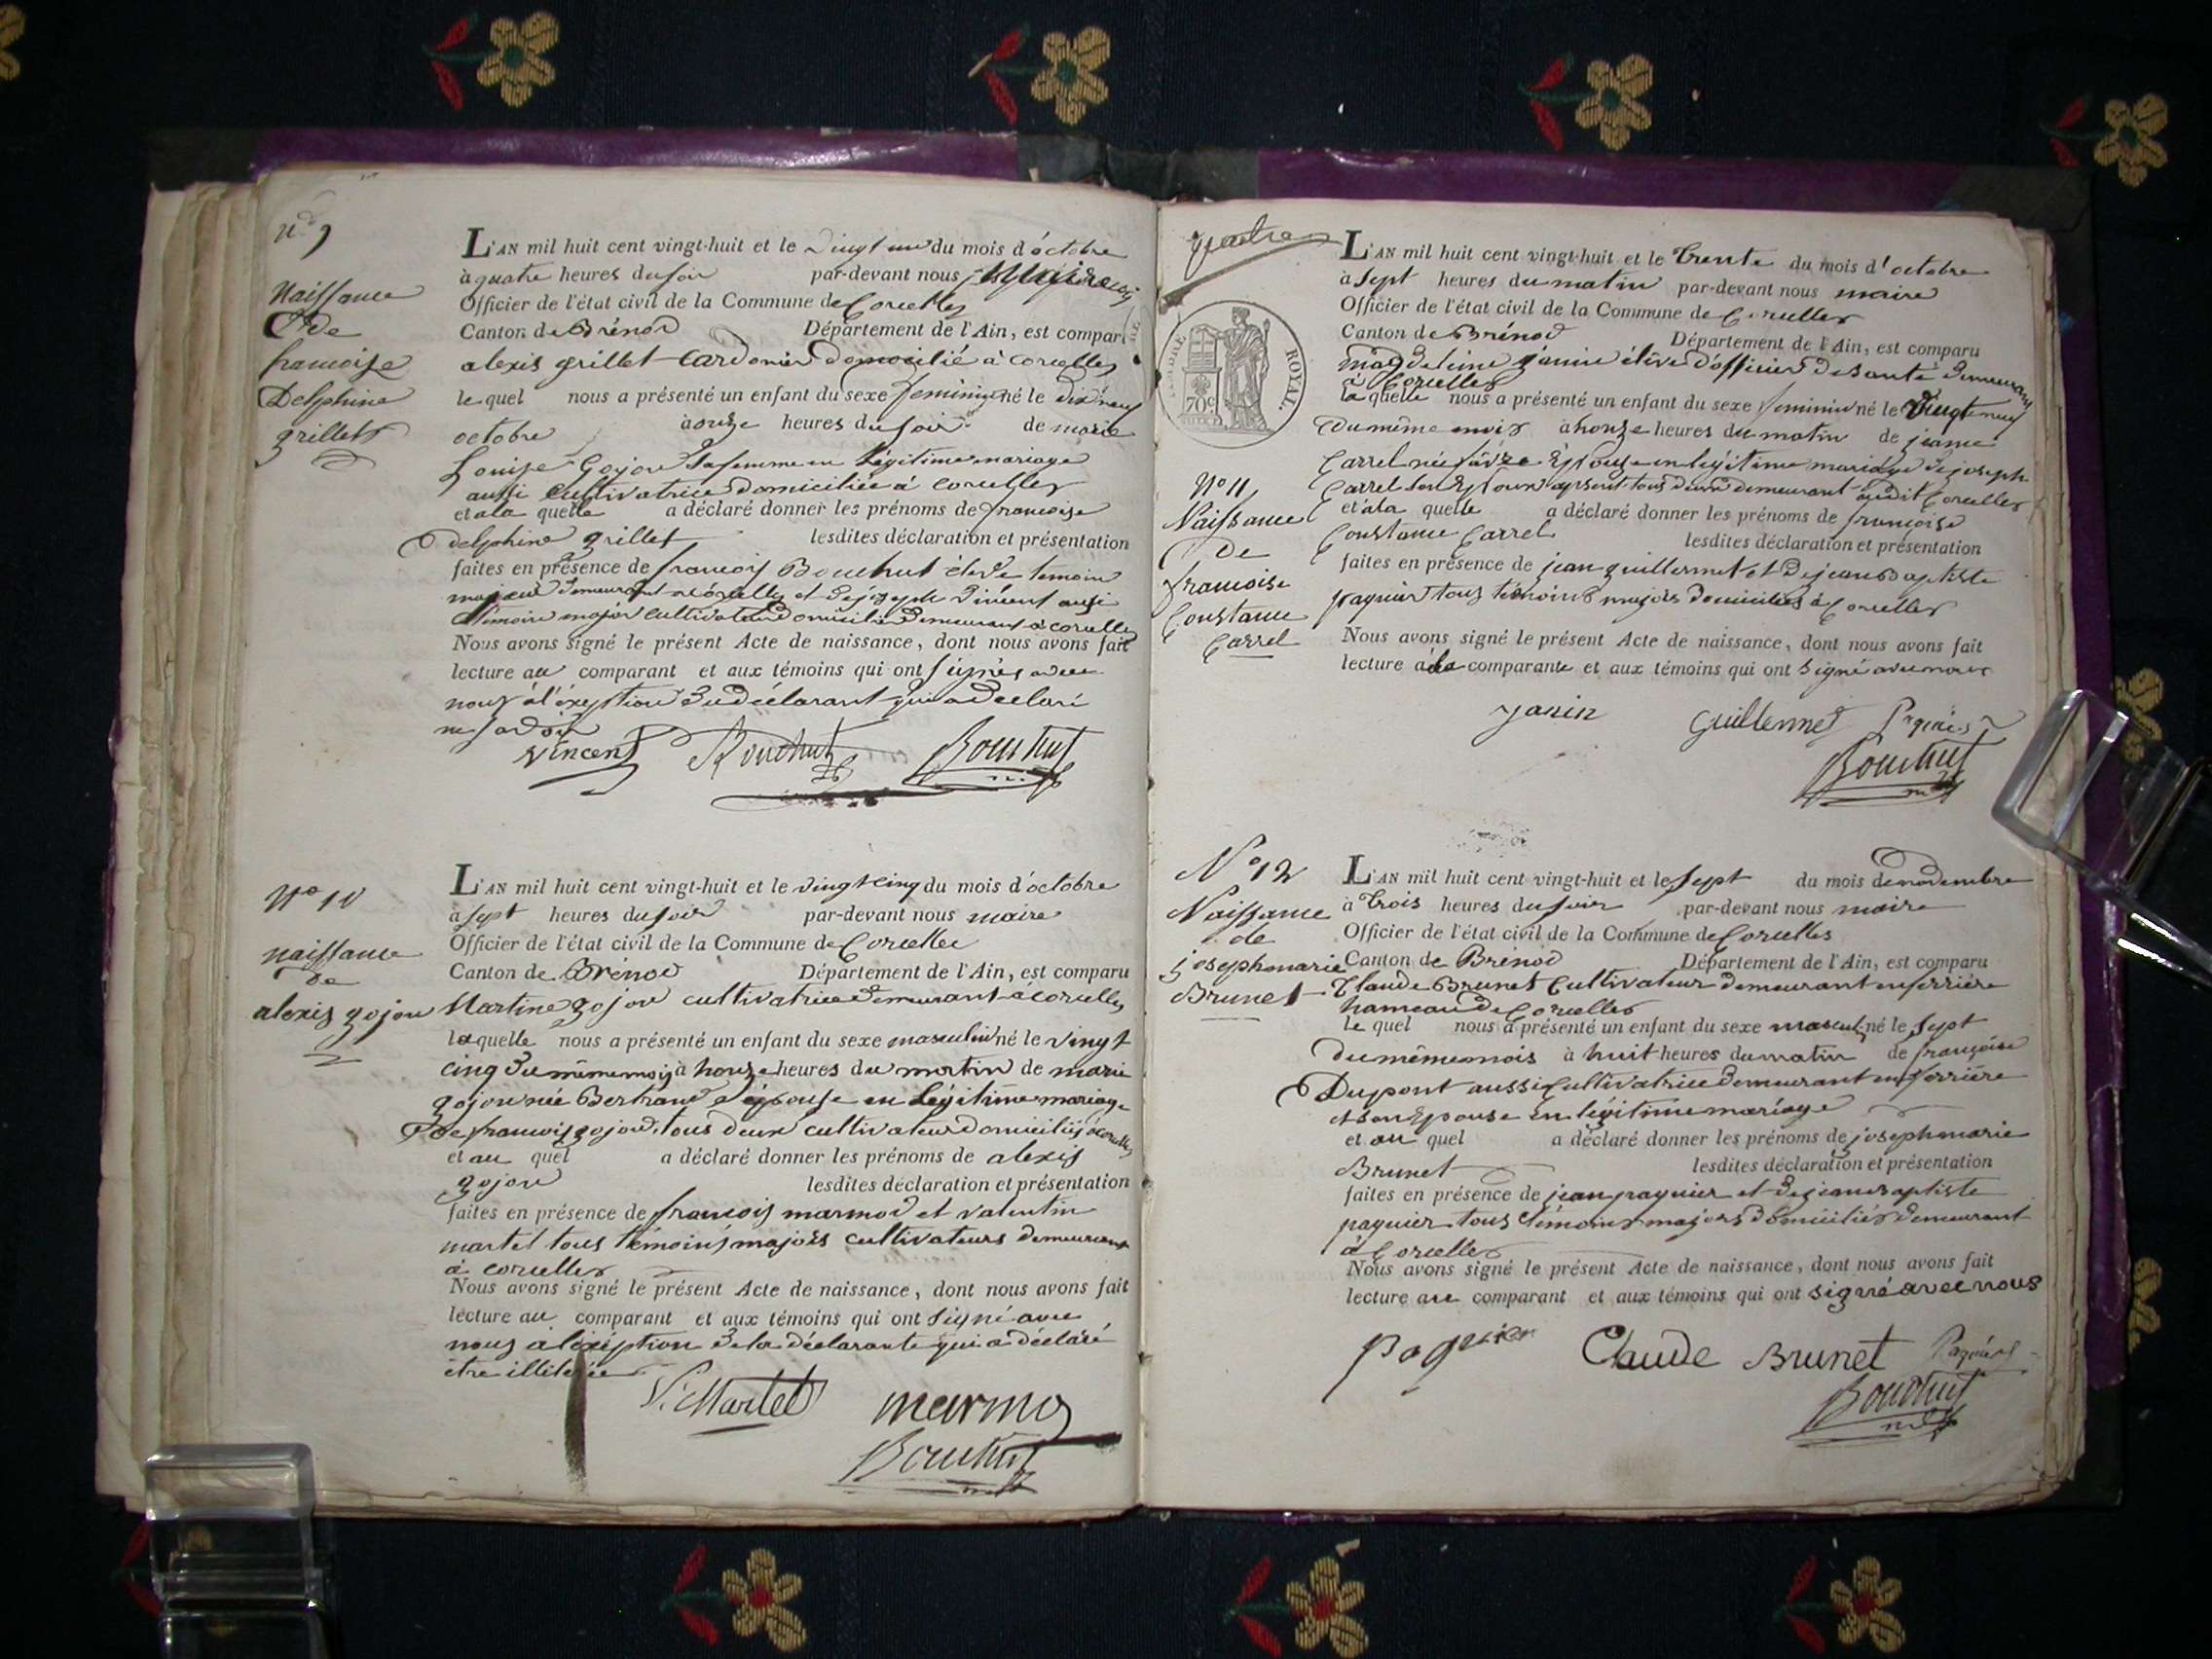 No 9
Naissance
de
francoise
Delphine
grillet
L'AN mil huit cent vingt-huit et le vingt un du mois d'octobre
à quatre heures du soir par-devant nous
Officier de l'état civil de la Commune de Corcelles
Canton de Brénod Département de l'Ain, est comparu
alexis grillet cardonier domicilié à corcelles
le quel nous a présenté un enfant du sexe feminin né le dix neuf
octobre à onze heures du soir de marie
Louise Gojou sa femme en légitime mariage
aussi cultivatrice domiciliée à corcelles
et a la quelle a déclaré donner les prénoms de francoise
delphine grillet lesdites déclaration et présentation
faites en présence de francois Bouchut témoin
majeur demeurant à Corcelles et de joseph Vincent aussi
témoin major cultivateur domicilié demeurant à corcelles
Nous avons signé le présent Acte de naissance, dont nous avons fait
lecture au comparant et aux témoins qui ont signés avec
nous à l'éxeption du déclarant qui a déclaré
ne savoir
Vincent Bouchut Bouchut
No 10
naissance
de
alexis gojou
L'AN mil huit cent vingt-huit et le vingt cinq du mois d'octobre
à sept heures du soir par-devant nous maire
Officier de l'état civil de la Commune de Corcelles
Canton de Brénod Département de l'Ain, est comparu
Martine gojou cultivatrice demeurant à corcelles
la quelle nous a présenté un enfant du sexe masculin né le vingt
cinq du même mois à honze heures du matin de marie
gojou née Bertrand épouse en légitime mariage
de francois gojou, tous deux cultivateurs domiciliés à corcelles
et au quel a déclaré donner les prénoms de alexis
gojou lesdites déclaration et présentation
faites en présence de francois marmod et valentin
martel tous témoins majors cultivateurs demeurant
à corcelles
Nous avons signé le présent Acte de naissance, dont nous avons fait
lecture au comparant et aux témoins qui ont signé avec
nous à l'éxéption de la déclarante qui a déclaré
être illiterée
V. Martel marmod
Bouchut
quatre
TIMBRE ROYAL.
70c
No 11
Naissance
de
francoise
Constance
Carrel
L'AN mil huit cent vingt-huit et le trente du mois d'octobre
à sept heures du matin par-devant nous maire
Officier de l'état civil de la Commune de Corcelles
Canton de Brénod Département de l'Ain, est comparu
magdeleine janin élève d'officier de santé demeurant
à Corcelles
la quelle nous a présenté un enfant du sexe feminin né le vingt neuf
du même mois à honze heures du matin de jeanne
Carrel née favre Epouse en legitime mariage de joseph
Carrel son Epoux absent tous deux demeurant audit Corcelles
et a la quelle a déclaré donner les prénoms de françoise
Constance Carrel lesdites déclaration et présentation
faites en présence de jean guillermet et de jean Baptiste
paquier tous témoins majors domiciliés à Corcelles
Nous avons signé le présent Acte de naissance, dont nous avons fait
lecture à la comparante et aux témoins qui ont signé avec nous
janin Guillermet Paquier
Bouchut
No 12
Naissance
de
joseph marie
Brunet
L'AN mil huit cent vingt-huit et le sept du mois de novembre
à trois heures du soir par-devant nous maire
Officier de l'état civil de la Commune de Corcelles
Canton de Brénod Département de l'Ain, est comparu
Claude Brunet Cultivateur demeurant en ferrière
hameau de Corcelles
le quel nous a présenté un enfant du sexe mascul. né le sept
du même mois à huit heures du matin de françoise
Dupont aussi Cultivatrice demeurant en ferrière
et son Epouse En légitime mariage
et au quel a déclaré donner les prénoms de joseph marie
Brunet lesdites déclaration et présentation
faites en présence de jean paquier et de jean Baptiste
paquier tous témoins majors domiciliés demeurant
à Corcelles
Nous avons signé le présent Acte de naissance, dont nous avons fait
lecture au comparant et aux témoins qui ont signé avec nous
paquier Claude Brunet Paquier
Bouchut